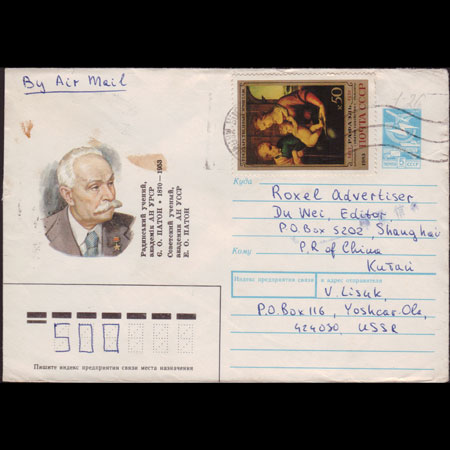 By Air Mail
50
ПОЧТА СССР
Радянський учений,
академік АН УРСР
Є. О. ПАТОН • 1870—1953
Советский ученый,
академик АН УССР
Е. О. ПАТОН
Куда
Roxel Advertiser
Du Wei, Editor
P.O Box 5202, Shanghai
Кому
P.R of China
Китай
Индекс предприятия связи и адрес отправителя
V. Lisuk,
P.O. Box 116, Yoshcar-Ola,
424030, USSR
500
Пишите индекс предприятия связи места назначения